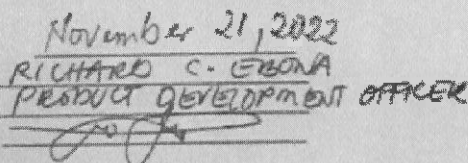 November 21, 2022
RICHARD C. EBONA
PRODUCT DEVELOPMENT OFFICER